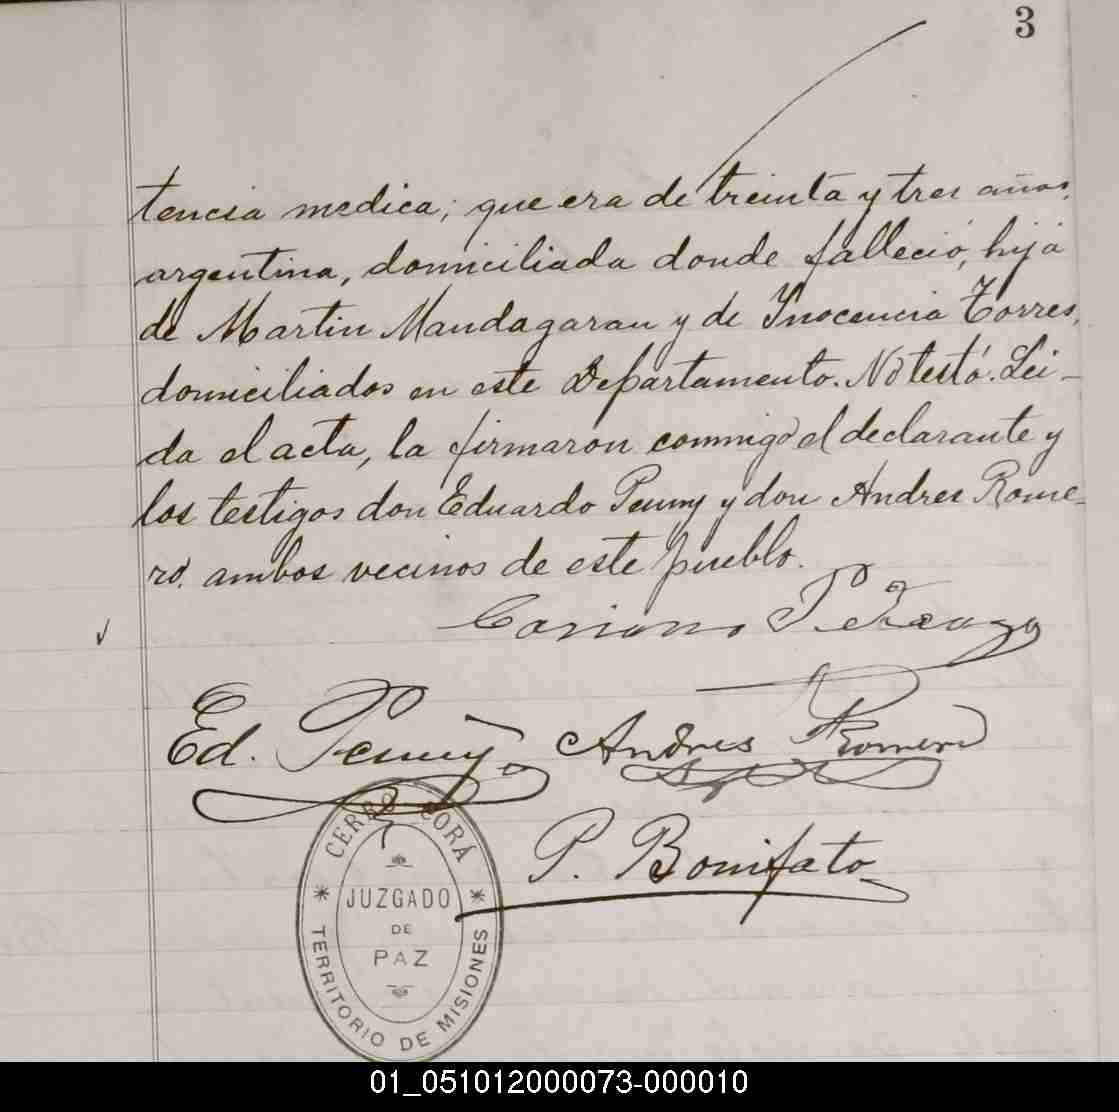 3
tencia medica; que era de treinta y tres años,
argentina, domiciliada donde falleció, hija
de Martin Mandagaran y de Inocencia Torres,
domiciliados en este Departamento. No testó. Lei-
da el acta, la firmaron conmigo el declarante y
los testigos don Eduardo Penny y don Andres Rome-
ro. ambos vecinos de este pueblo.
Ed. Penny
Andres Romero
P. Bonifato
CERRO CORÁ
JUZGADO
DE
PAZ
TERRITORIO DE MISIONES
01_051012000073-000010